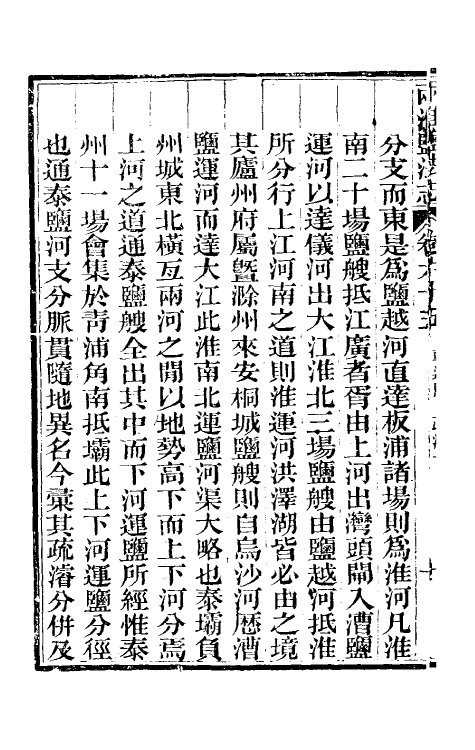 分支而東是爲鹽越河直達板浦諸場則爲淮河凡淮
南二十場鹽艘抵江廣者胥由上河出灣頭閘入漕鹽
運河以達儀河出大江淮北三場鹽艘由鹽越河抵淮
所分行上江河南之道則淮運河洪澤湖皆必由之境
其廬州府屬曁滁州來安桐城鹽艘則自烏沙河厯漕
鹽運河而達大江此淮南北運鹽河渠大略也泰壩負
州城東北橫亙兩河之閒以地勢高下而上下河分焉
上河之道通泰鹽艘全出其中而下河運鹽所經惟泰
州十一場會集於靑浦角南抵壩此上下河運鹽分徑
也通泰鹽河支分脈貫隨地異名今彙其疏濬分併及